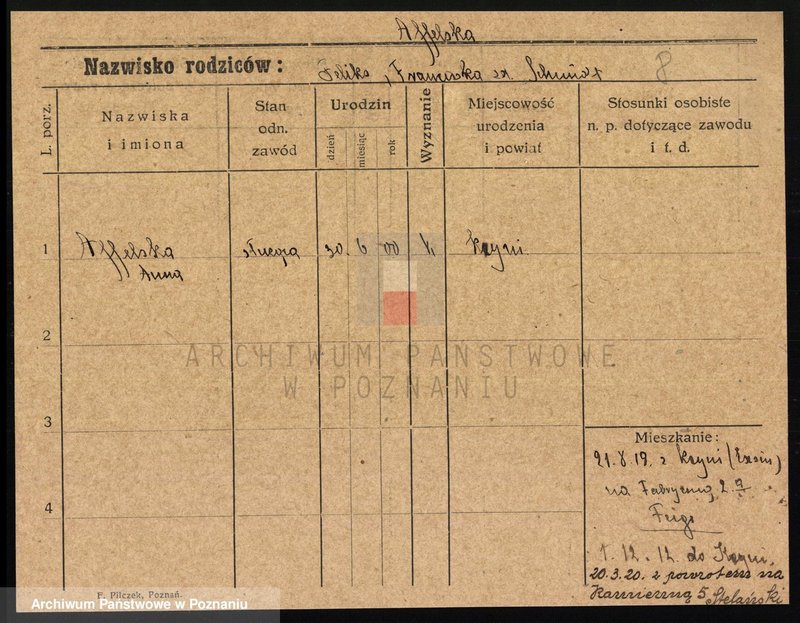 Affelska
Nazwisko rodziców: Feliks, Franciszka Schmidt 8
L. porz.
Nazwiska
i imiona
Stan
odn.
zawód
Urodzin
dzień
miesiąc
rok
Wyznanie
Miejscowość
urodzenia
i powiat
Stosunki osobiste
n. p. dotyczące zawodu
i t. d.
1 Affelska służąca 30. 6 00 k Kcyni
Anna
2
3
4
Mieszkanie:
21.8.19. z Kcyni (Exin)
na Fabryczną 27
Feige
1. 12. 12. do Kcyni.
20.3.20. z powrotem na
Kamienną 5 Stelański
F. Pilczek, Poznań.
ARCHIWUM PAŃSTWOWE
W POZNANIU
Archiwum Państwowe w Poznaniu